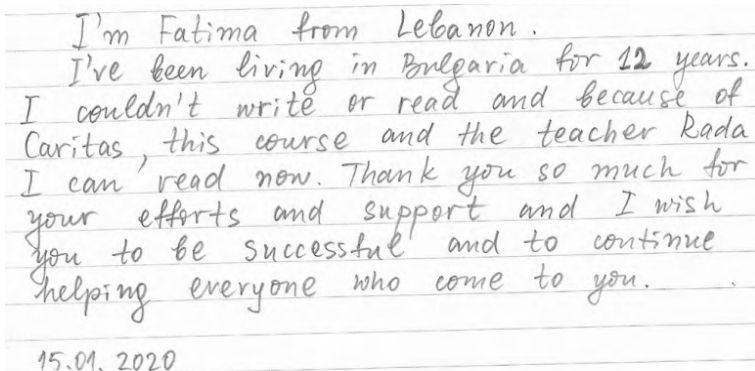 I'm Fatima from Lebanon.
I've been living in Bulgaria for 12 years.
I couldn't write or read and because of
Caritas, this course and the teacher Rada
I can read now. Thank you so much for
your efforts and support and I wish
you to be successful and to continue
helping everyone who come to you.
15.01.2020